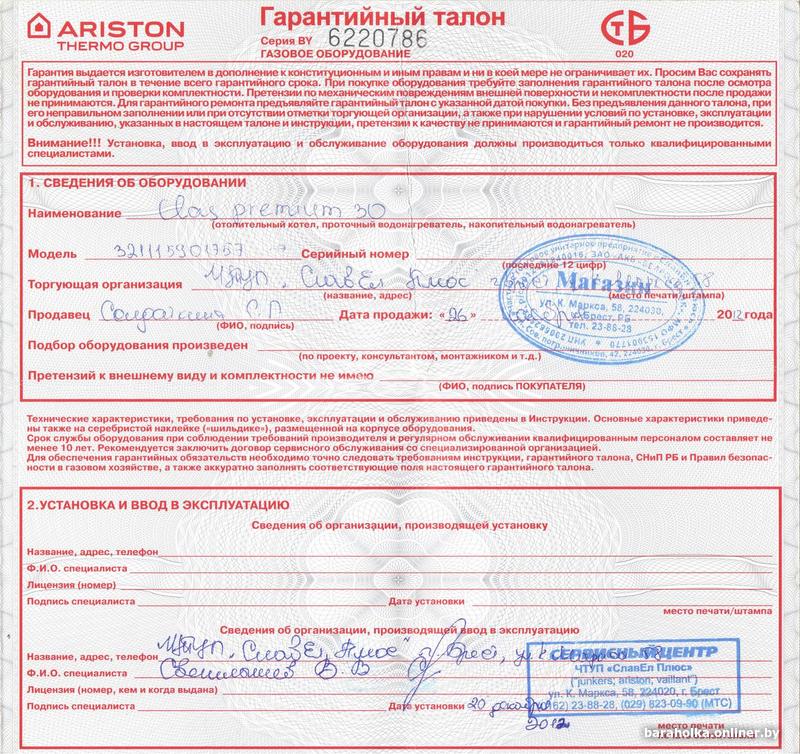 ARISTON
THERMO GROUP
Гарантийный талон
Серия BY 6220786
ГАЗОВОЕ ОБОРУДОВАНИЕ
СТБ
020
Гарантия выдается изготовителем в дополнение к конституционным и иным правам и ни в коей мере не ограничивает их. Просим Вас сохранять
гарантийный талон в течение всего гарантийного срока. При покупке оборудования требуйте заполнения гарантийного талона после осмотра
оборудования и проверки комплектности. Претензии по механическим повреждениям внешней поверхности и некомплектности после продажи
не принимаются. Для гарантийного ремонта предъявляйте гарантийный талон с указанной датой покупки. Без предъявления данного талона, при
его неправильном заполнении или при отсутствии отметки торгующей организации, а также при нарушении условий по установке, эксплуатации
и обслуживанию, указанных в настоящем талоне и инструкции, претензии к качеству не принимаются и гарантийный ремонт не производится.
Внимание!!! Установка, ввод в эксплуатацию и обслуживание оборудования должны производиться только квалифицированными
специалистами.
1. СВЕДЕНИЯ ОБ ОБОРУДОВАНИИ
Наименование Clas premium 30
(отопительный котел, проточный водонагреватель, накопительный водонагреватель)
Модель Серийный номер
(последние 12 цифр)
Торгующая организация ЧТУП. СлавЕл Плюс
(название, адрес) (место печати/штампа)
Продавец Дата продажи: «26» 2012 года
(ФИО, подпись)
Магазин
ул. К. Маркса, 58, 224030,
г. Брест, РБ
тел. 23-86-28
Подбор оборудования произведен
(по проекту, консультантом, монтажником и т.д.)
Претензий к внешнему виду и комплектности не имею
(ФИО, подпись ПОКУПАТЕЛЯ)
Технические характеристики, требования по установке, эксплуатации и обслуживанию приведены в Инструкции. Основные характеристики приведе-
ны также на серебристой наклейке («шильдике»), размещенной на корпусе оборудования.
Срок службы оборудования при соблюдении требований производителя и регулярном обслуживании квалифицированным персоналом составляет не
менее 10 лет. Рекомендуется заключить договор сервисного обслуживания со специализированной организацией.
Для обеспечения гарантийных обязательств необходимо точно следовать требованиям инструкции, гарантийного талона, СНиП РБ и Правил безопас-
ности в газовом хозяйстве, а также аккуратно заполнять соответствующие поля настоящего гарантийного талона.
2.УСТАНОВКА И ВВОД В ЭКСПЛУАТАЦИЮ
Сведения об организации, производящей установку
Название, адрес, телефон
Ф.И.О. специалиста
Лицензия (номер)
Подпись специалиста Дата установки
место печати/штампа
Сведения об организации, производящей ввод в эксплуатацию
Название, адрес, телефон ЧТУП. СлавЕл Плюс" г. Брест, ул.
Ф.И.О. специалиста
Лицензия (номер, кем и когда выдана)
Подпись специалиста Дата установки 20 декабря
2012
место печати
СЕРВИСНЫЙ ЦЕНТР
ЧТУП «СлавЕл Плюс»
("junkers; ariston; vaillant")
ул. К. Маркса, 58, 224020, г. Брест
(162) 23-88-28, (029) 823-09-90 (МТС)
baraholka.onliner.by